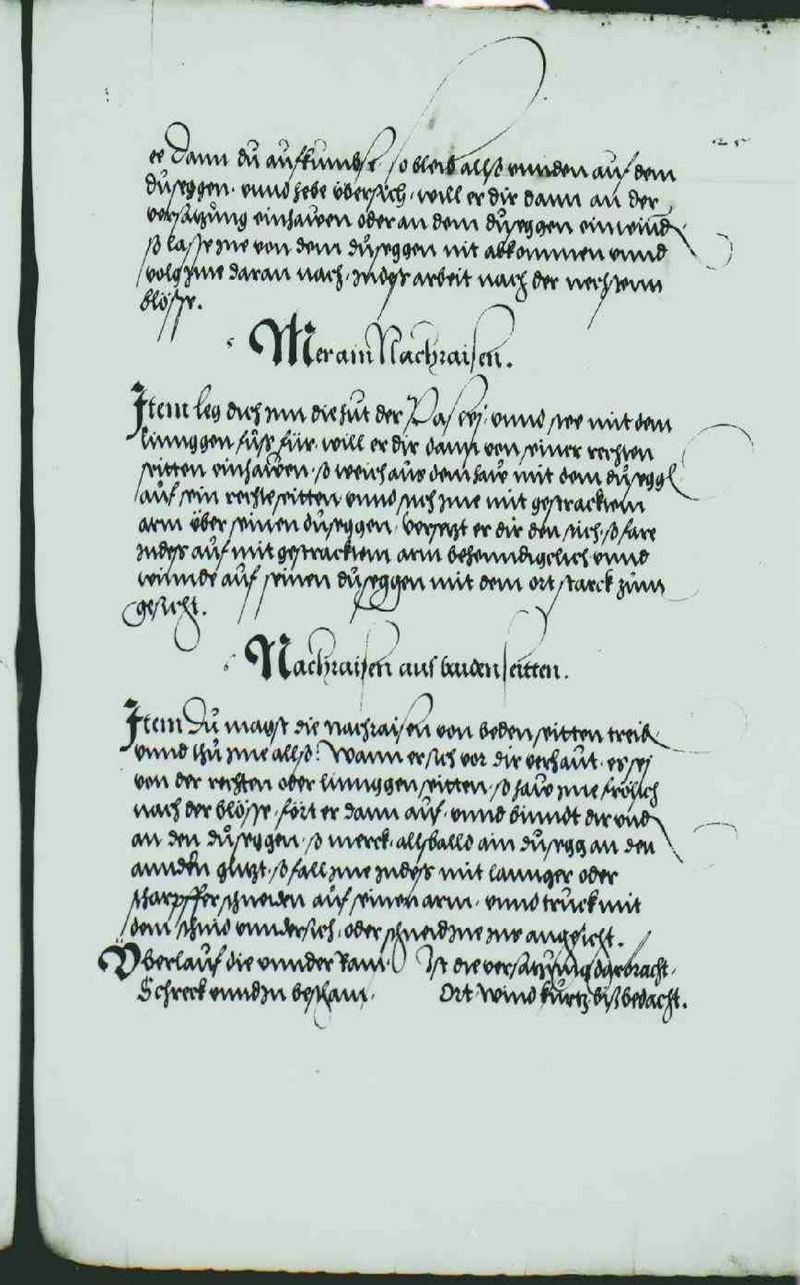 25
ee Dann du aufkumbst so bleib allso vnnden auf dem
duseggen. vnnd hebe übersich, will er dir dann an der
versatzung einhawen oder an dem duseggen einwind
so lasse jne von dem duseggen nit abkommen vnnd
volg jme daran nach, Indes arbeit nach der nechstenn
blösse.
Mer ain Nachraisen.
Item leg dich jnn die hut der Pastey, vnnd stee mit dem
linnggen fůs für, will er dir dann von seiner rechten
seitten einhawen, so weich aus dem haw mit dem dusegg
auf sein rechte seitten vnnd stich jme mit gestracktem
arm über seinen duseggen, versetzt er dir den stich, so fare
Indes auf mit gestracktem arm behenndigclich vnnd
winnde auf seinen duseggen mit dem ort starck zum
gesicht.
Nachraisen aus baiden seitten.
Item Du magst die nachraisen von beden seitten treib
vnnd thu jme allso: Wann er sich vor dir verhaut, es sej
von der rechten oder linnggen seitten, so haw jme frölich
nach der blösse, fört er dann auf, vnnd binndt dir vnd
an den duseggen, so merck, allsballd ain dusegg an den
anndern glitzt, so fall jme Indes mit lannger oder
scharpffer schneiden auf seinen arm, vnnd truck mit
dem schnid vnndersich, oder schneid jme jns angesicht.
Vberlauf die vnnder Ram, Ist die versatzung dargebracht,
Schreck vnnd In bestam, Ort Wind kurtz biß bedacht.